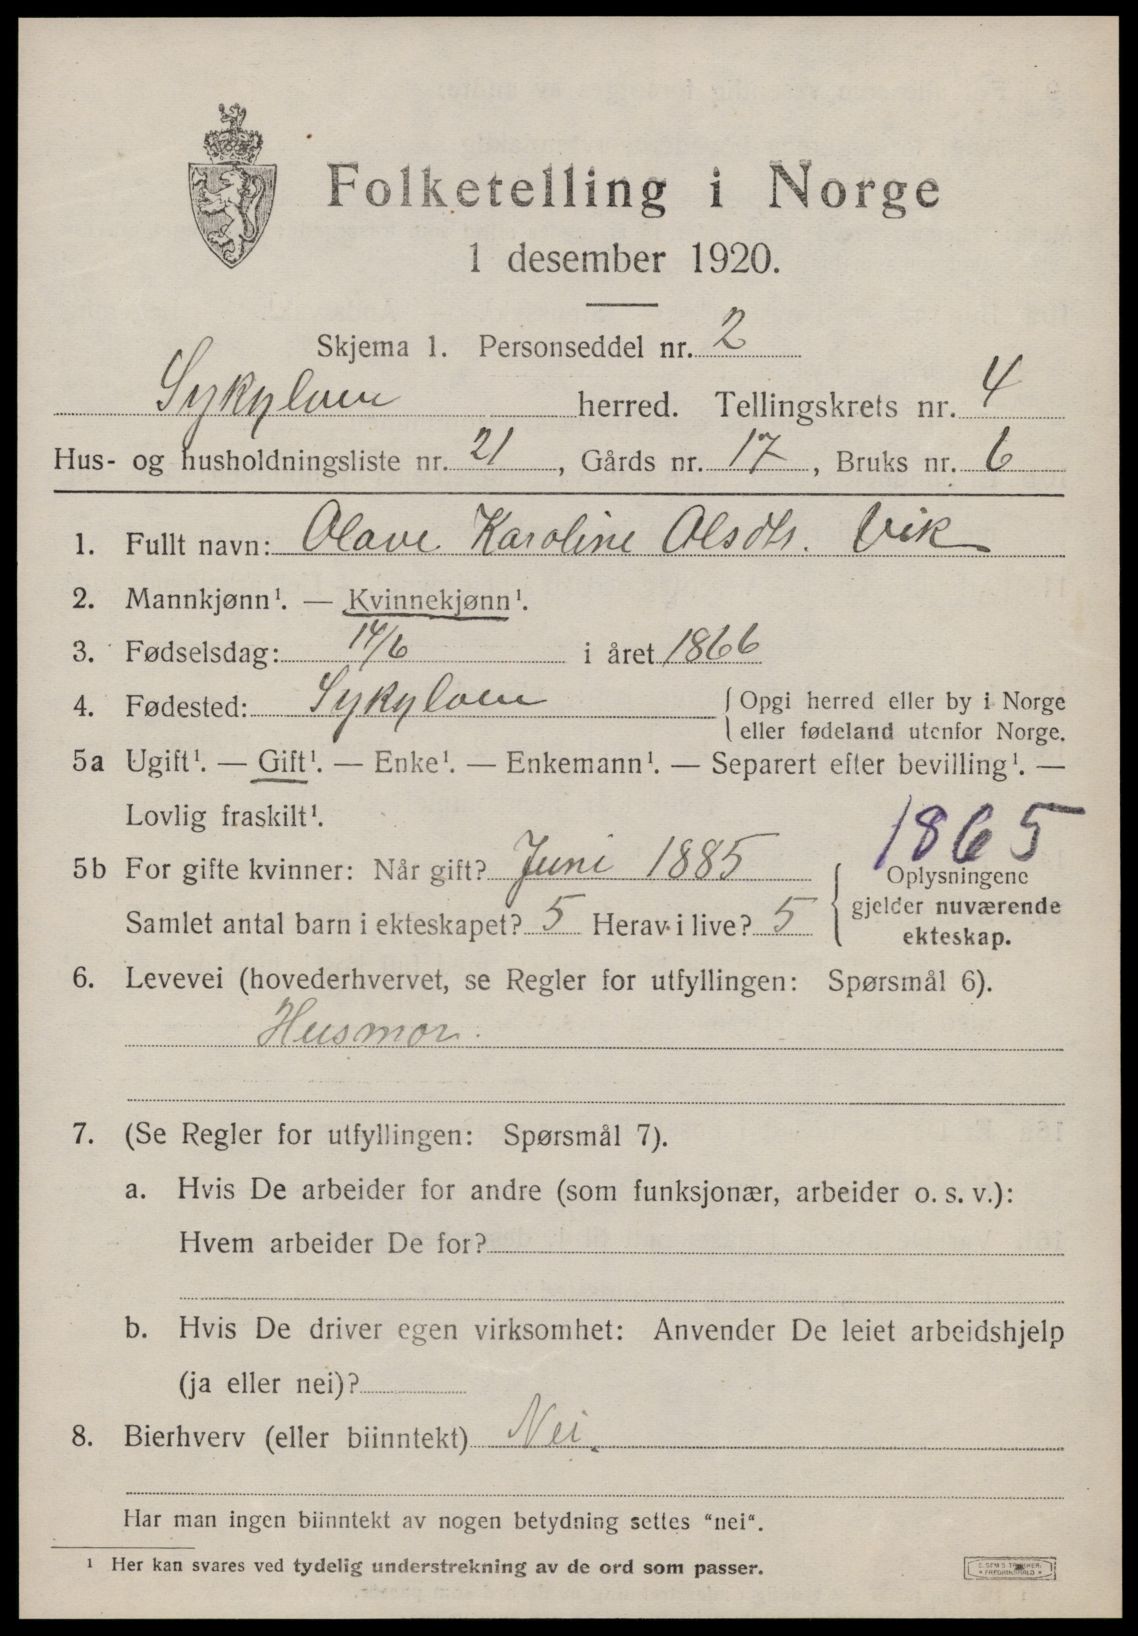 Folketelling i Norge
1 desember 1920.
Skjema 1. Personseddel nr. 2
Sykylven herred. Tellingskrets nr. 4
Hus- og husholdningsliste nr. 21, Gårds nr. 17, Bruks nr. 6
1. Fullt navn: Olave Karoline Olsdtr. Vik
2. Mannkjønn¹. — Kvinnekjønn¹.
3. Fødselsdag: 14/6 i året 1866
4. Fødested: Sykylven { Opgi herred eller by i Norge
eller fødeland utenfor Norge.
5a Ugift¹. — Gift¹. — Enke¹. — Enkemann¹. — Separert efter bevilling¹. —
Lovlig fraskilt¹.
1865
5b For gifte kvinner: Når gift? Juni 1885
Samlet antal barn i ekteskapet? 5 Herav i live? 5
{ Oplysningene
gjelder nuværende
ekteskap.
6. Levevei (hovederhvervet, se Regler for utfyllingen: Spørsmål 6).
Husmor.
7. (Se Regler for utfyllingen: Spørsmål 7).
a. Hvis De arbeider for andre (som funksjonær, arbeider o. s. v.):
Hvem arbeider De for?
b. Hvis De driver egen virksomhet: Anvender De leiet arbeidshjelp
(ja eller nei)?
8. Bierhverv (eller biinntekt) Nei.
Har man ingen biinntekt av nogen betydning settes “nei“.
¹ Her kan svares ved tydelig understrekning av de ord som passer.